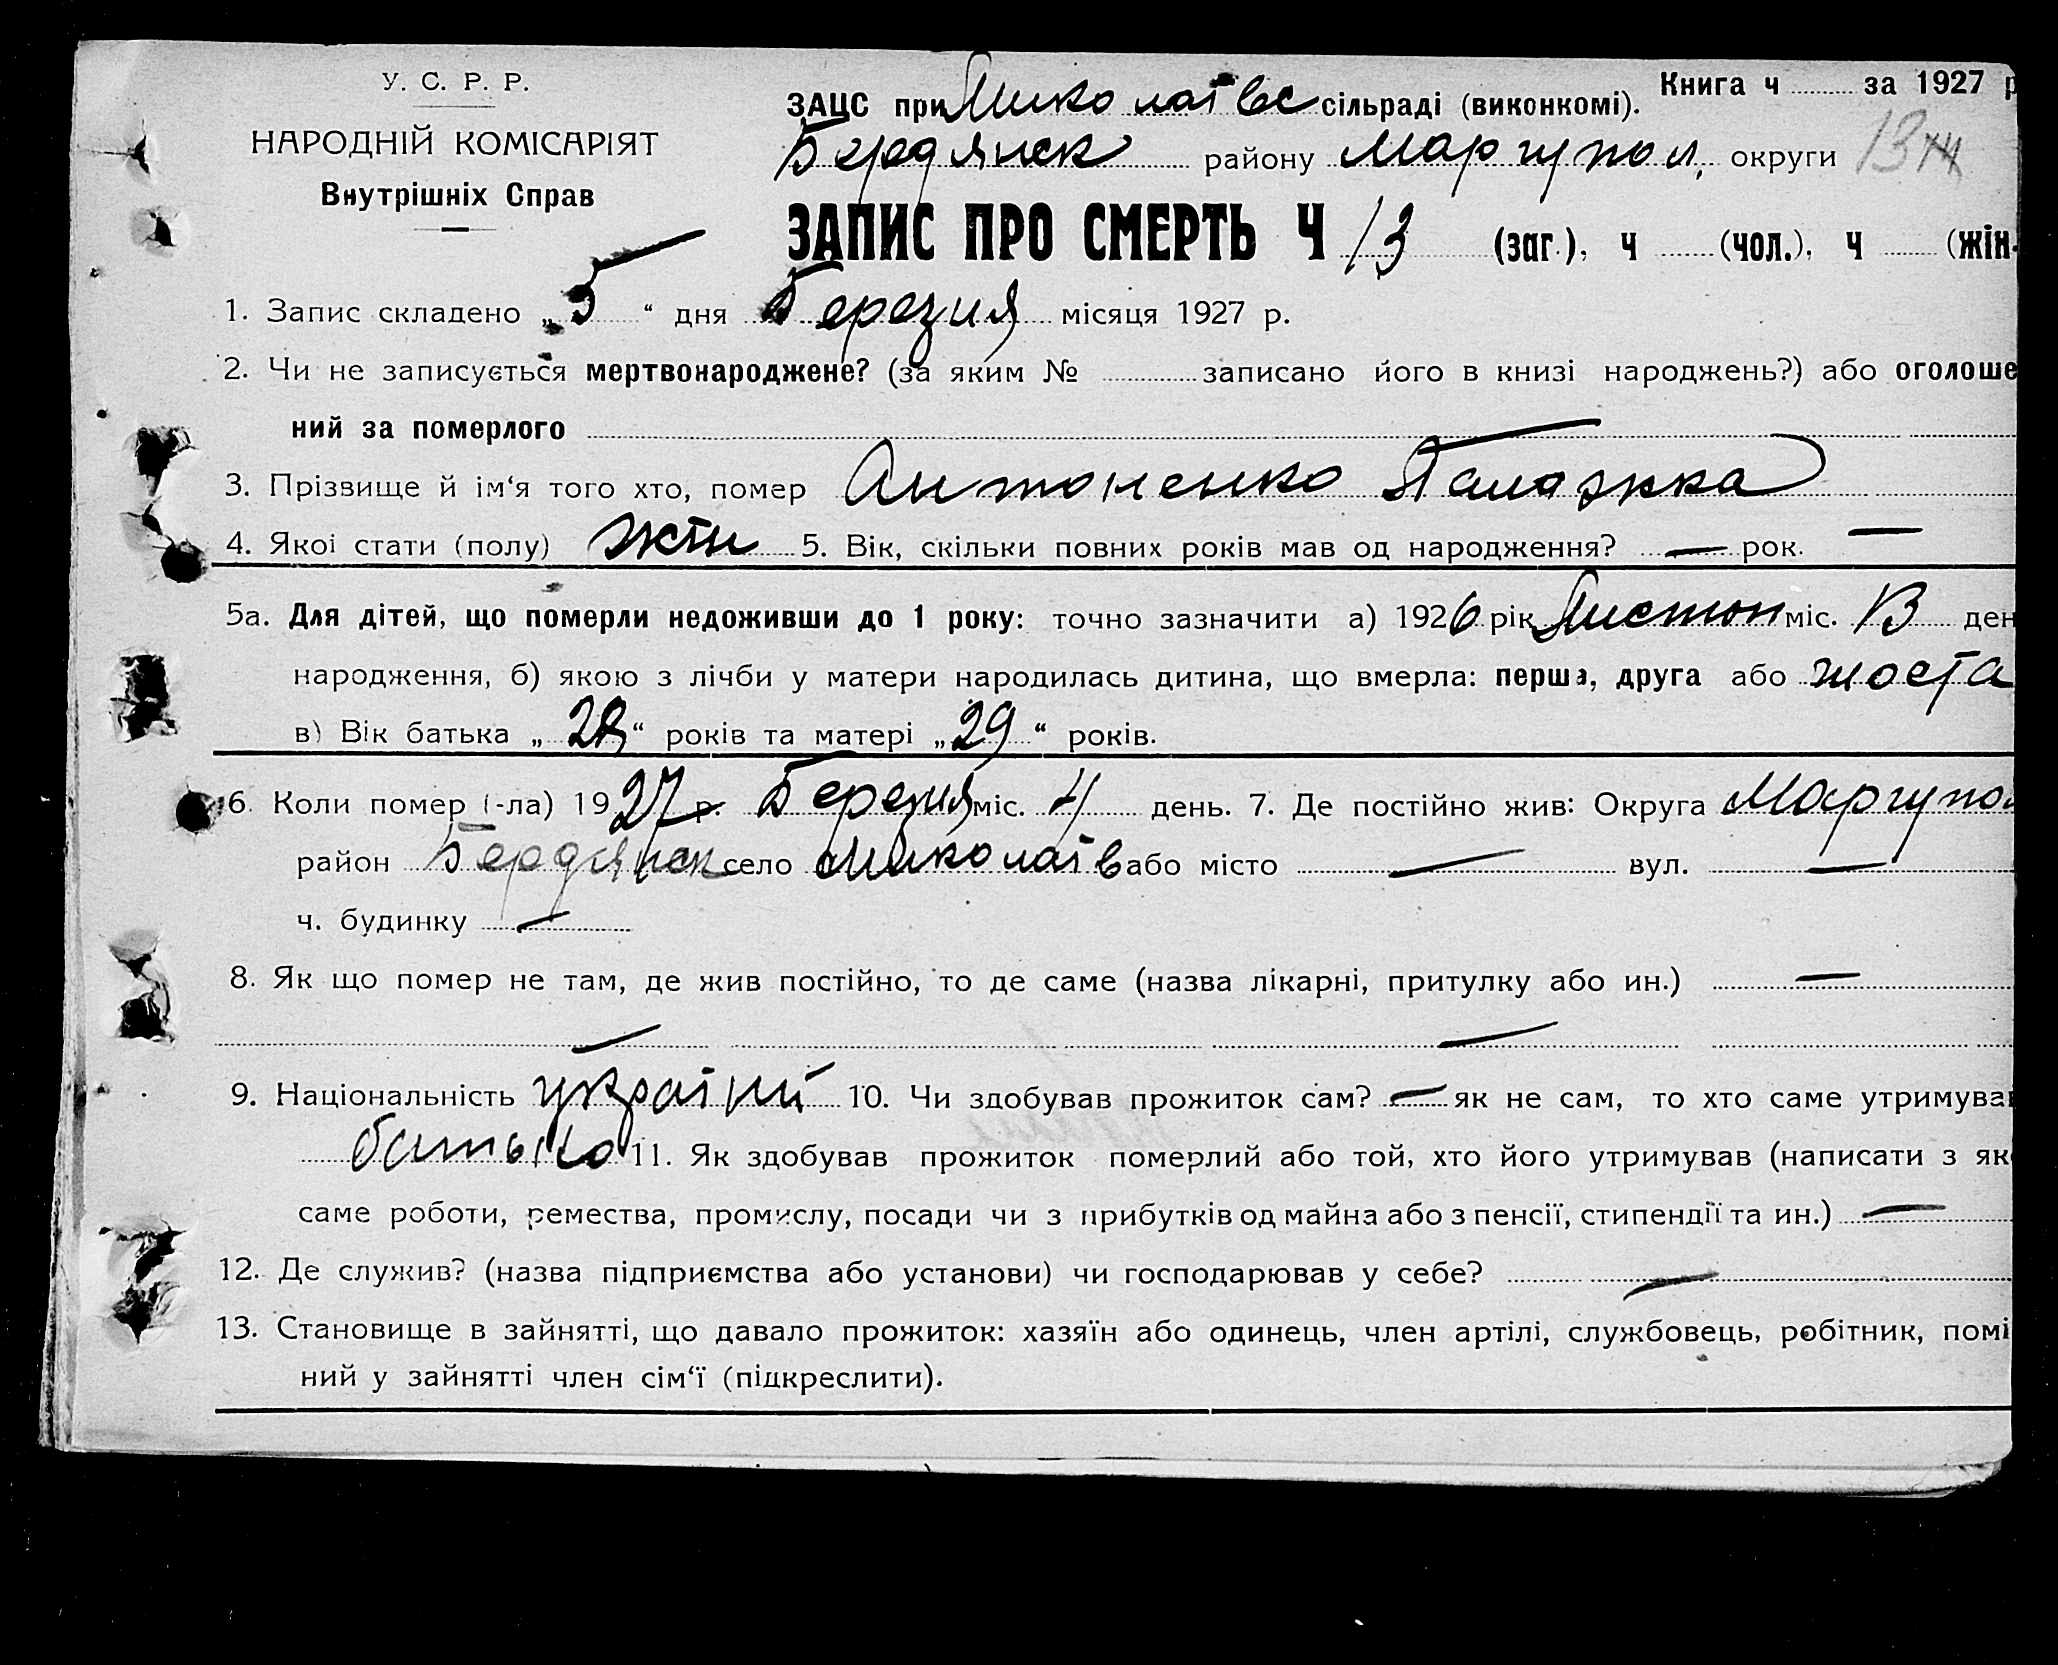 У. С. Р. Р.
НАРОДНІЙ КОМІСАРІЯТ
Внутрішніх Справ
Книга ч за 1927 р
ЗАЦС при Миколаївс сільраді (виконкомі).
Бердянск району Маріупол. округи 13
ЗАПИС ПРО СМЕРТЬ Ч 13 (заг.), ч (чол.), ч (жін.
1. Запис складено „5“ дня Березня місяця 1927 р.
2. Чи не записується мертвонароджене? (за яким № записано його в книзі народжень?) або оголоше
ний за померлого
3. Прізвище й ім‘я того хто, помер Антоненко Палажка
4. Якої стати (полу) жін 5. Вік, скільки повних років мав од народження? — рок. —
5а. Для дітей, що померли недоживши до 1 року: точно зазначити а) 1926 рік Листоп міс. 13 ден
народження, б) якою з лічби у матери народилась дитина, що вмерла: перша, друга або шоста
в) Вік батька „28“ років та матері „29“ років.
6. Коли помер (-ла) 1927 р. Березня міс. 4 день. 7. Де постійно жив: Округа Маріупол
район Бердянск село Миколаїв або місто — вул. —
ч. будинку —
8. Як що помер не там, де жив постійно, то де саме (назва лікарні, притулку або ин.) —
— —
9. Національність україн 10. Чи здобував прожиток сам? — як не сам, то хто саме утримував
батько 11. Як здобував прожиток померлий або той, хто його утримував (написати з яко
саме роботи, ремества, промислу, посади чи з прибутків од майна або з пенсії, стипендії та ин.) —
12. Де служив? (назва підприємства або установи) чи господарював у себе? —
13. Становище в зайнятті, що давало прожиток: хазяїн або одинець, член артілі, службовець, робітник, помі
ний у зайнятті член сім‘ї (підкреслити).